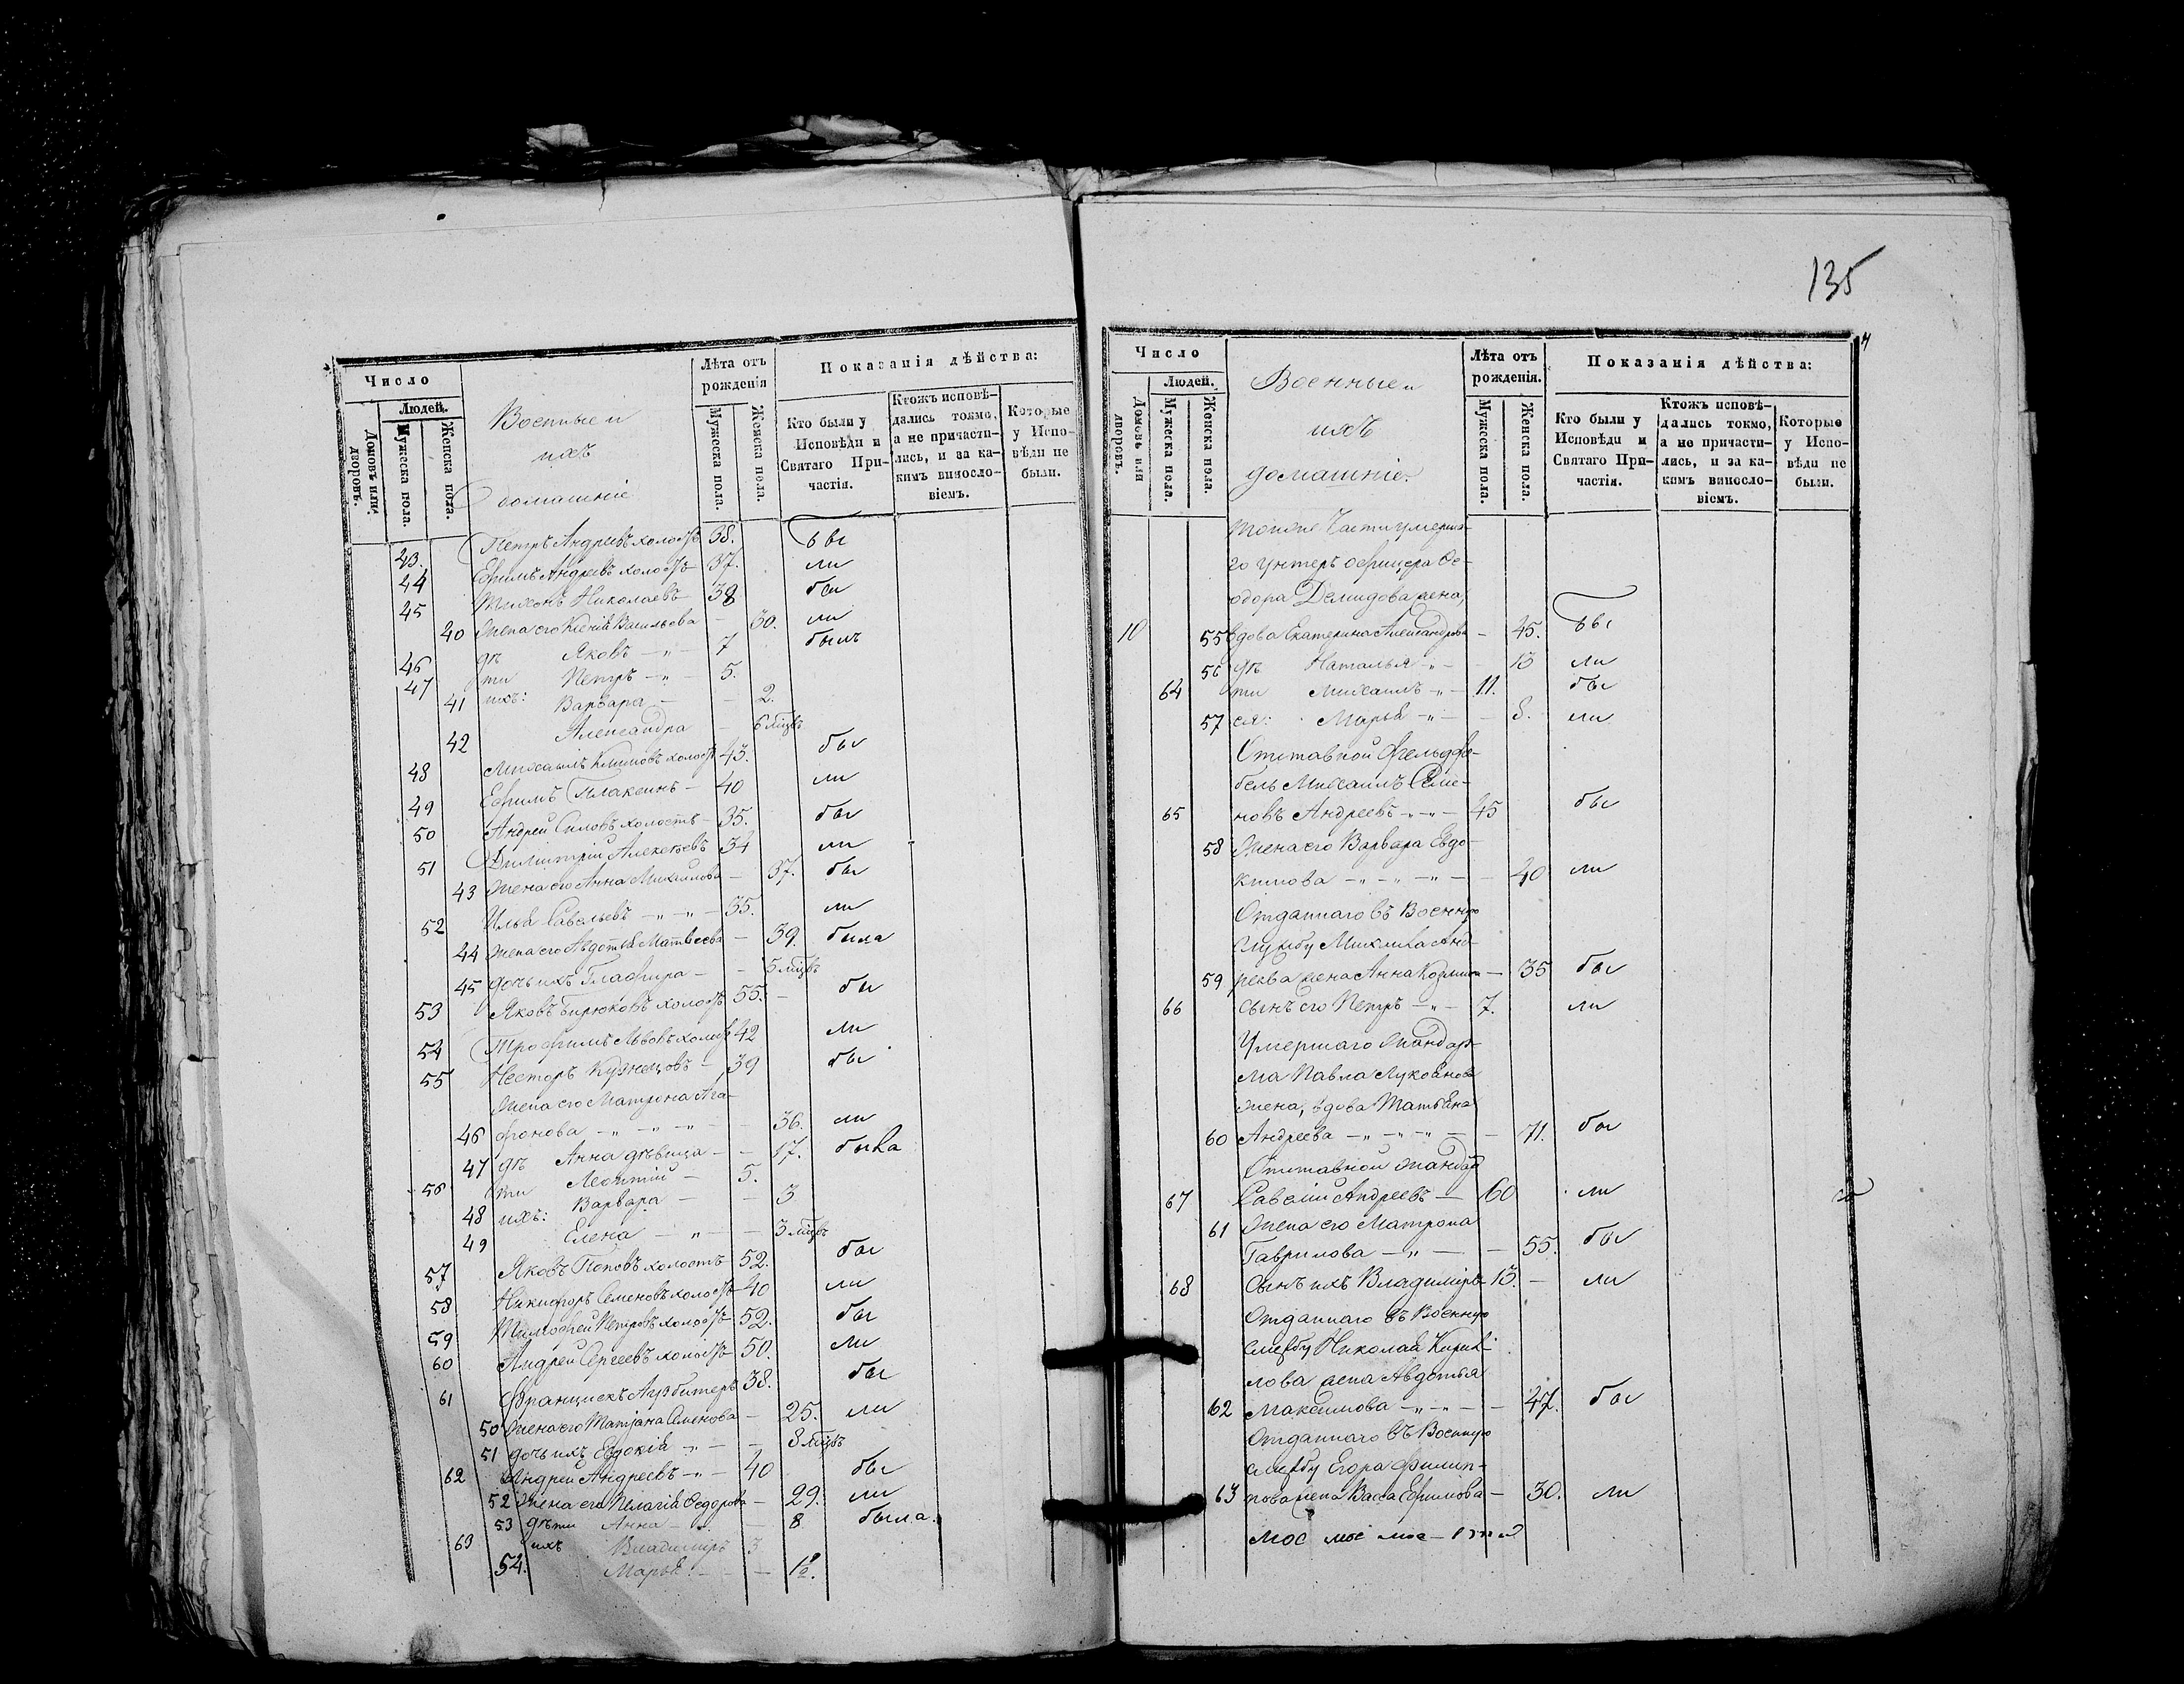 Число
Людей.
Домовъ или дворовъ.
Мужеска пола.
Женска пола.
Военные и
ихъ
домашніе
Лѣта отъ рожденія
Мужеска пола.
Женска пола.
Показанія дѣйства:
Кто были у Исповѣди и Святаго Причастія.
Ктожъ исповѣдались токмо, а не причастились, и за какимъ винословіемъ.
Которые у Исповѣди не были.
43. Петръ Андреевъ холостъ 38. бы
44 Ефимъ Андреевъ холостъ 37. ли
45 Тихонъ Николаевъ 38 бы
40 Жена его Ксенія Васильева – 30. ли
46 дѣ Яковъ – „ – 7 былъ
47 ти Петръ – „ – 5.
41 ихъ: Варвара – – 2.
42 Александра – 6 мцвъ
48 Михаилъ Климовъ холостъ 43. бы
49 Ефимъ Плаксинъ – 40 ли
50 Андрей Силовъ холостъ – 35. бы
51 Димитрій Алексѣевъ 34 ли
43 Жена его Анна Михаилова – 37. бы
52 Илья Савельевъ – „ – „ – 35. ли
44 Жена его Авдотья Матвѣева – 39. была
45 дочь ихъ Глафира – – 5 мцвъ
53 Яковъ Бирюковъ холостъ 55. – бы
54 Трофимъ Львовъ холостъ 42 ли
55 Несторъ Кузнецовъ – 39 бы
Жена его Матрона Ага-
46 фонова – „ – „ – „ – 36. ли
47 дѣ Анна дѣвица – – 17. была
56 ти Леонтій – 5.
48 ихъ: Варвара – – 3
49 Елена – „ – – 3 мцвъ
57 Яковъ Поповъ холостъ 52. бы
58 Никифоръ Семеновъ холостъ 40 ли
59 Тимофей Петровъ холостъ 52. бы
60 Андрей Сергеевъ холостъ 50. ли
61 Францискъ 38. бы
50 Жена его Татіана Семенова – 25. ли
51 дочь ихъ Евдокія – „ – – 8 мцвъ
62 Андрей Андреевъ – „ – 40 бы
52 Жена его Пелагія Федорова – 29. ли
53 дѣти Анна – „ – 8 была.
63 ихъ Владиміръ 3
54. Марья – – 1½.
135
Число
Людей.
Домовъ или дворовъ.
Мужеска пола.
Женска пола.
Военные и
ихъ
домашніе.
Лѣта отъ рожденія.
Мужеска пола.
Женска пола.
Показанія дѣйства:
Кто были у Исповѣди и Святаго Причастія.
Ктожъ исповѣдались токмо, а не причастились, и за какимъ винословіемъ.
Которые у Исповѣди не были.
тойже Части умерша-
го унтеръ офицера Фе-
одора Демидова жена,
10 55 вдова Екатерина Александрова – 45. бы
56 дѣ Наталья – „ – – 13 ли
64 ти Михаилъ – „ – 11. бы
57 ея: Марья – „ – – 8. ли
Отставной Фельдфе-
бель Михаилъ Семе-
65 новъ Андреевъ – „ – „ – 45 бы
58 Жена его Варвара Евдо-
кимова – „ – „ – „ – – 40 ли
Отданнаго въ Военную
службу Михаила Анд-
59 реева жена Анна Козмина – 35 бы
66 Сынъ его Петръ – „ – 7. ли
Умершаго Жандар-
ма Павла Лукоянова
жена, вдова Татьяна
60 Андреева – „ – „ – „ – – 71. бы
Отставной жандарм
67 Савелій Андреевъ – 60 ли
61 Жена его Матрона
Гаврилова – „ – – 55. бы
68 Сынъ ихъ Владиміръ 13. – ли
Отданнаго въ Военную
службу Николая Кирил-
лова жена Авдотья
62 Максимова – „ – „ – – 47. бы
Отданнаго въ Военную
службу Егора Филип-
63 пова жена Васса Ефимова – 30. ли